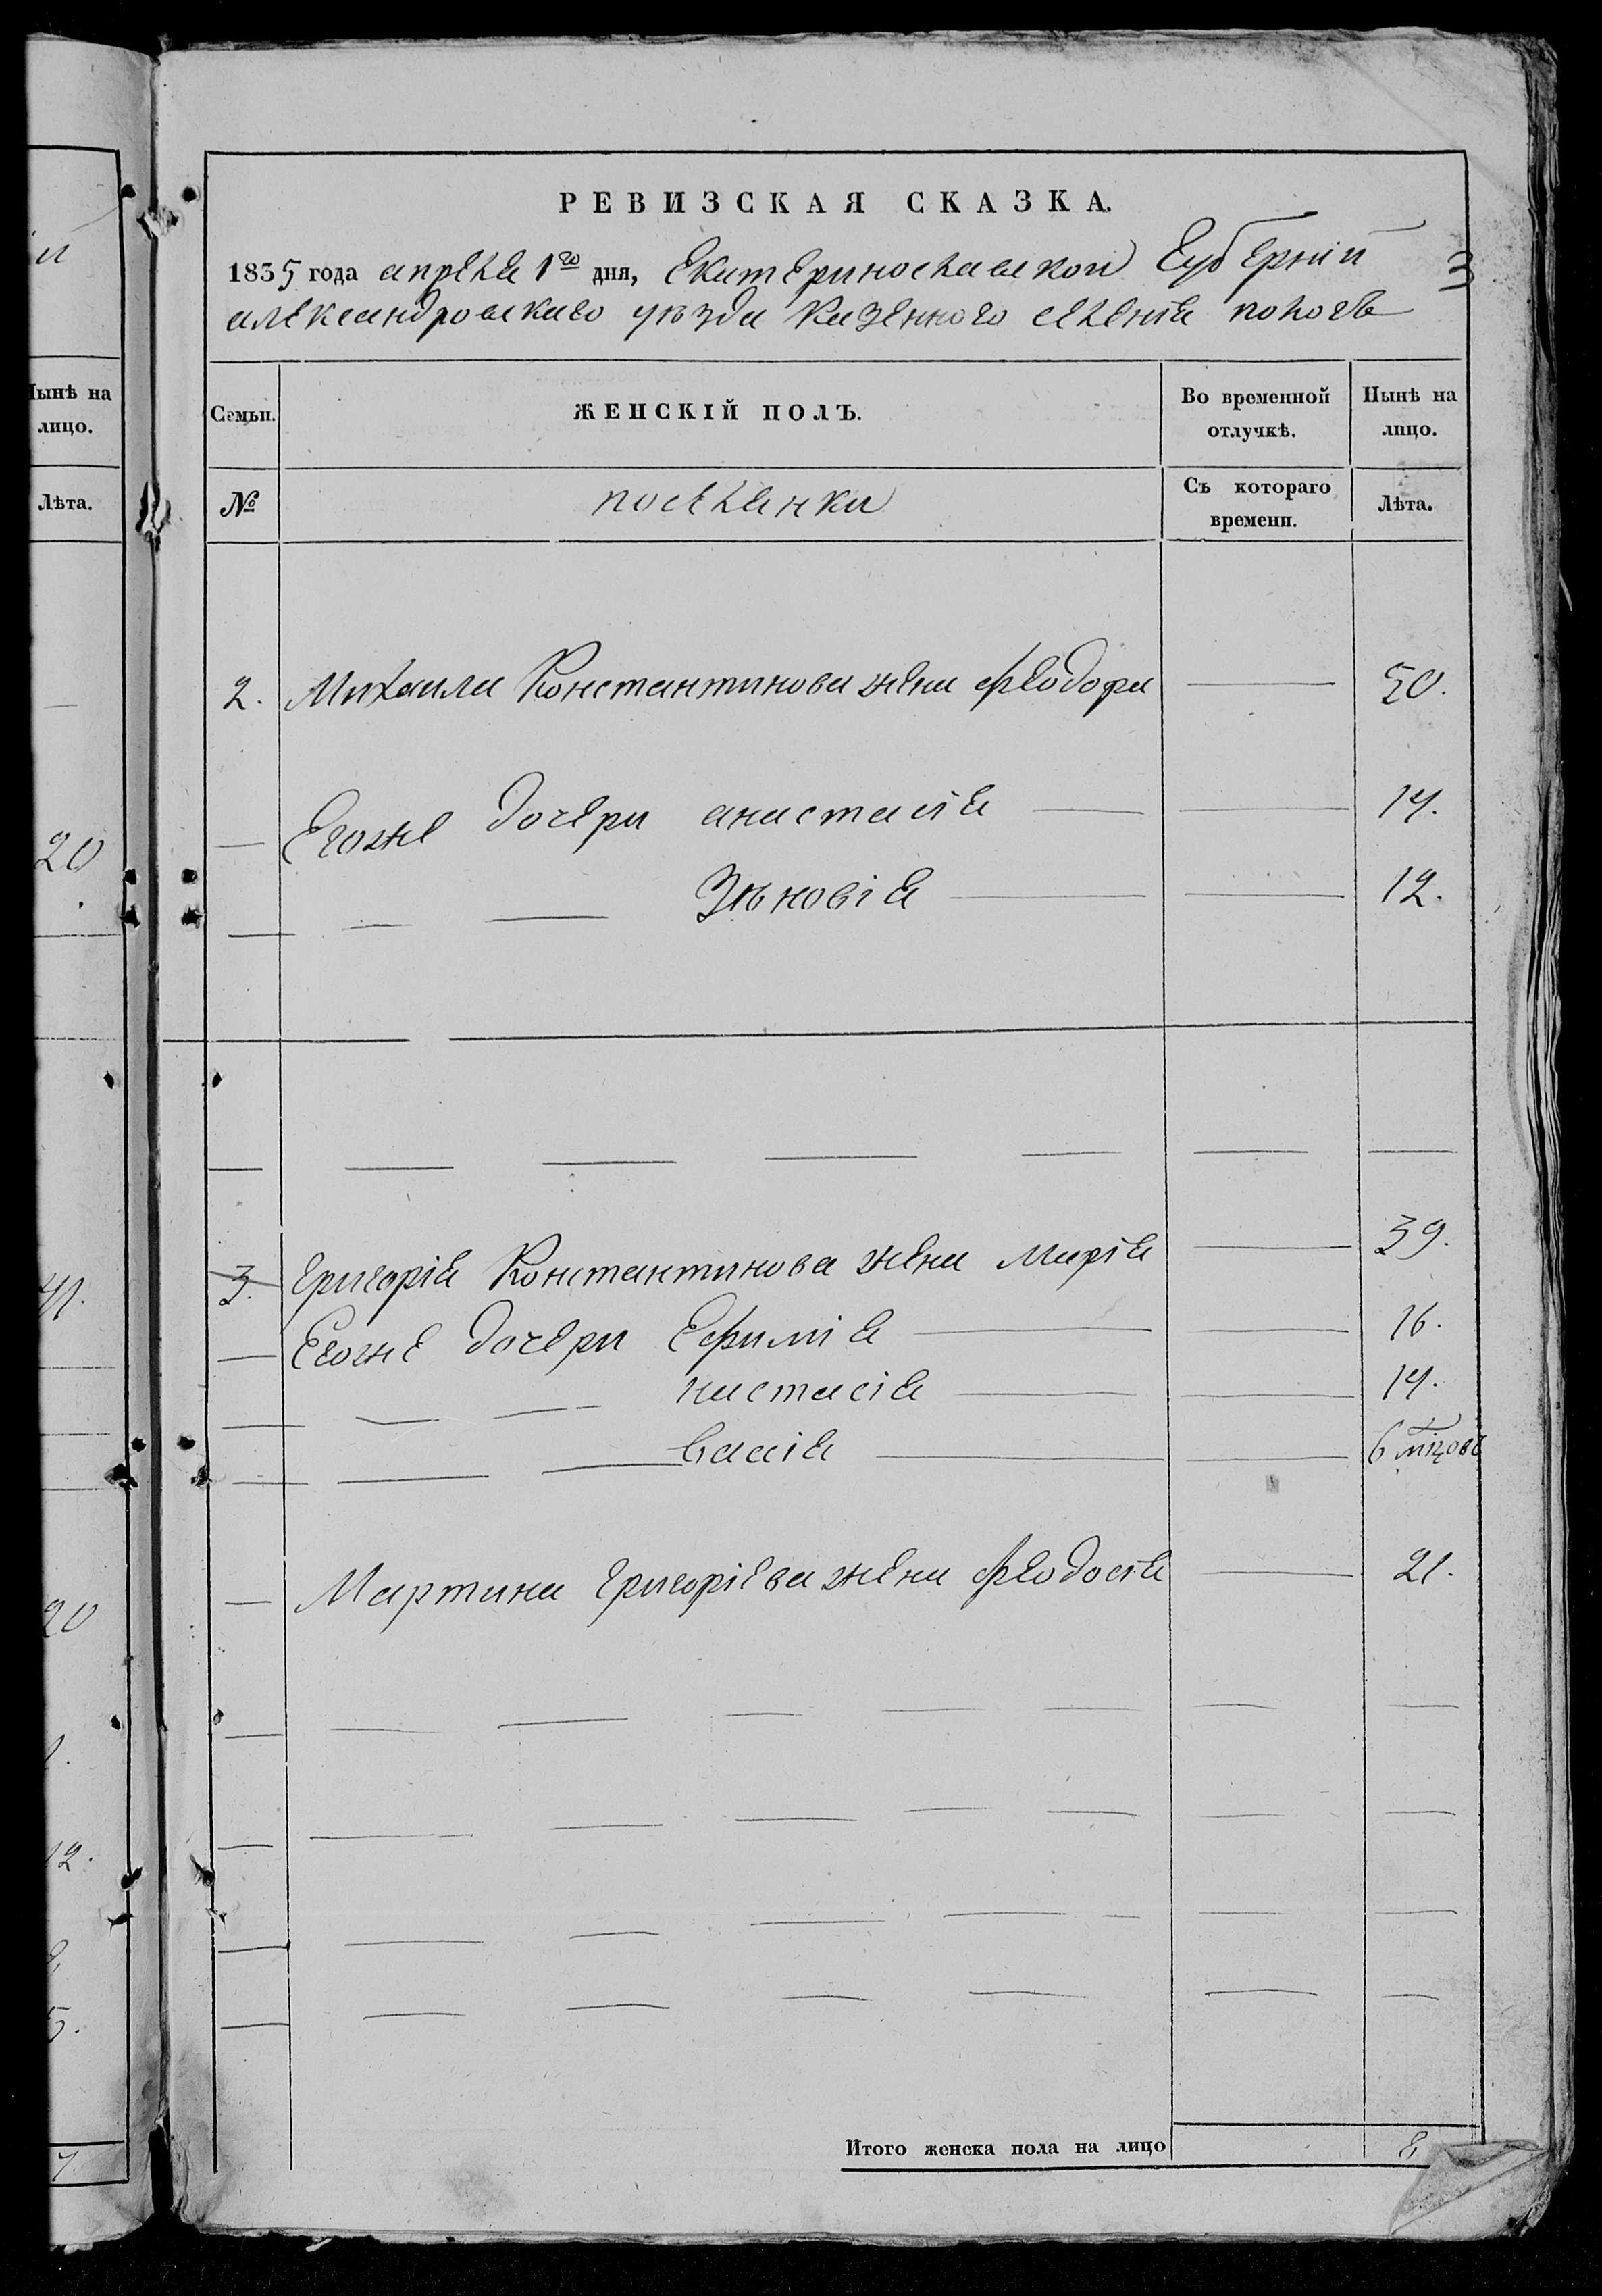 РЕВИЗСКАЯ СКАЗКА.
1835 года апреля 1го дня, Екатеринославской Губернiй
3
александровскаго уѣзда Казенного селенiя пологъ
Нынѣ на
лицо.
Лѣта.
Семьи.
ЖЕНСКIЙ ПОЛЪ.
Во временной
отлучкѣ.
Нынѣ на
лицо.
№
поселянки
Съ котораго
времени.
Лѣта.
2. Михаила Константинова жена феодора 50.
Егоже дочери анастасiя 14.
Зѣновiя 12.
20
3. Григорiя Константинова жена Марiя 39.
Егоже дочери Ефимiя 16.
настасiя 14.
васiя 6 мѣцовъ
Мартина Григорiева жена феодосiя 21.
20
12.
5.
Итого женска пола на лицо 8